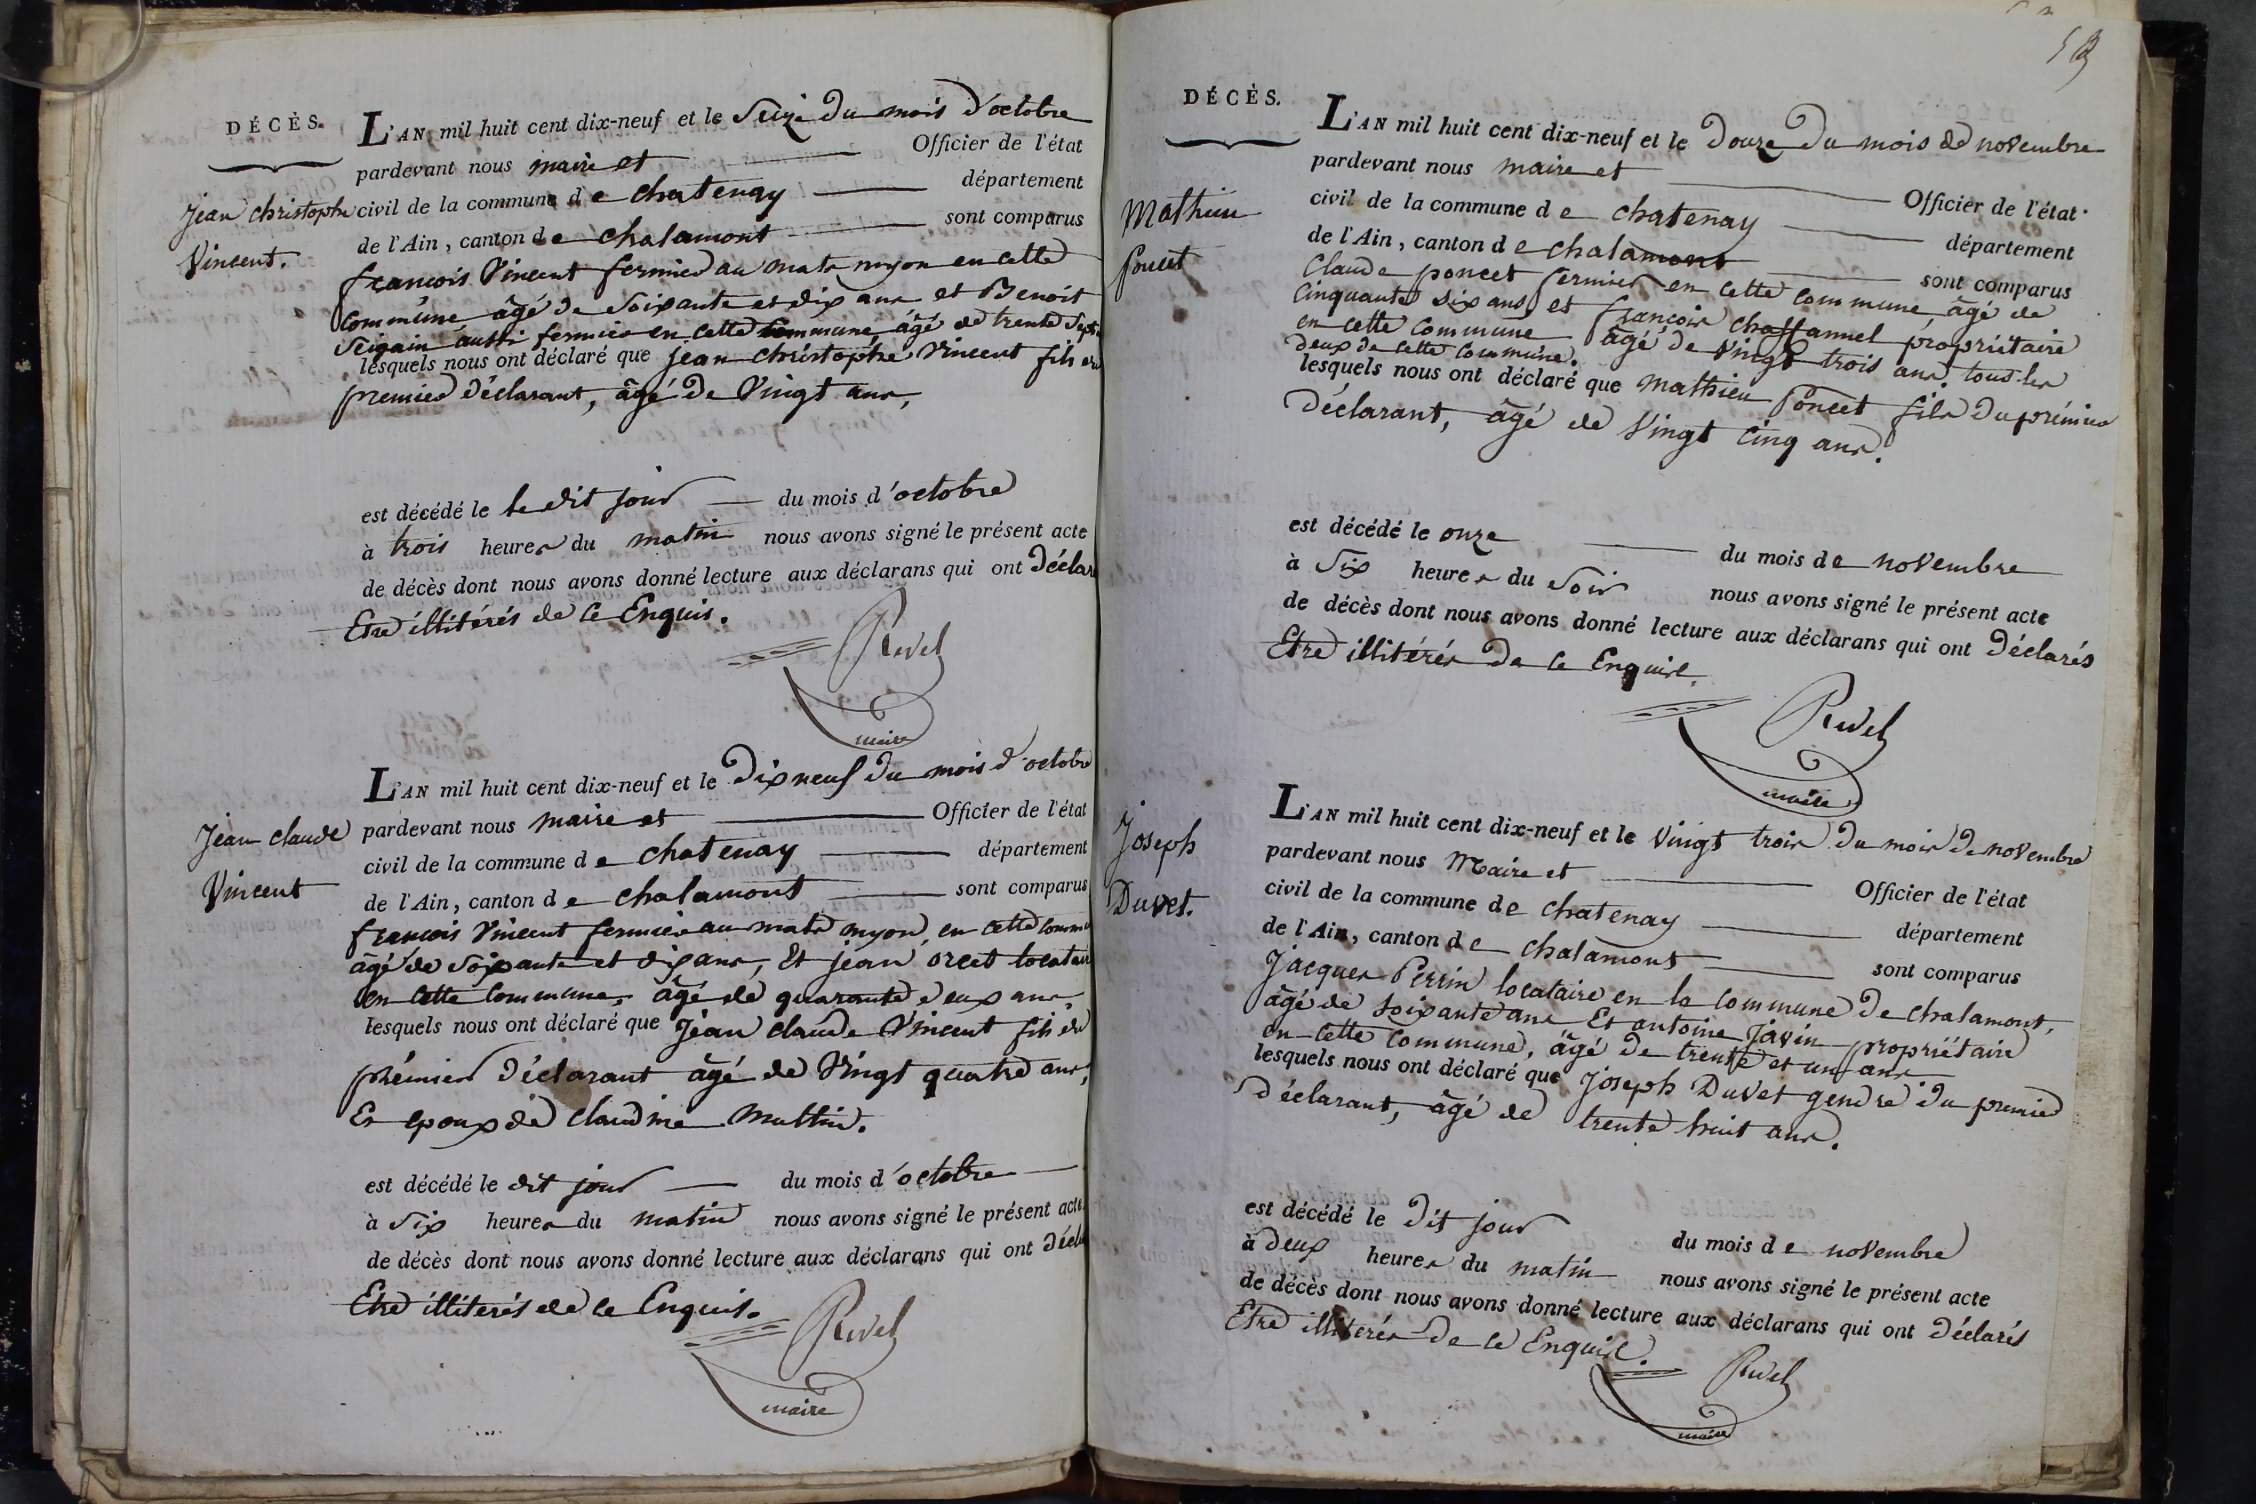 DÉCÈS.
Jean christophe
Vincent.
L'AN mil huit cent dix-neuf et le Seize du mois d'octobre
pardevant nous maire et Officier de l'état
civil de la commune de chatenay département
de l'Ain, canton de chalamont sont comparus
françois Vincent fermier au mats myon en cette
commune âgé de Soixante et dix ans et Benoit
aussi fermier en cette commune, âgé de trente Sept
lesquels nous ont déclaré que jean christophe Vincent fils du
premier déclarant, âgé de Vingt ans,
est décédé le le dit jour du mois d'octobre
à trois heures du matin nous avons signé le présent acte
de décès dont nous avons donné lecture aux déclarans qui ont Déclar
Etre illitérés de ce Enquis.
Rivel
maire
Jean claude
Vincent
L'AN mil huit cent dix-neuf et le Dix neuf du mois d'octobre
pardevant nous maire et Officier de l'état
civil de la commune de chatenay département
de l'Ain, canton de chalamont sont comparus
françois Vincent fermier au mats myon, en cette comm
âgé de Soixante et dix ans, Et jean orcet locataire
en cette commune, âgé de quarante deux ans,
lesquels nous ont déclaré que Jean claude Vincent fils du
prémier déclarant âgé de Vingt quatre ans,
Et epoux de claudine Muttin.
est décédé le dit jour du mois d'octobre
à Six heures du matin nous avons signé le présent acte
de décès dont nous avons donné lecture aux déclarans qui ont Décla
Etre illiterés de ce Enquis.
Rivel
maire
DÉCÈS.
Mathieu
Poncet
L'AN mil huit cent dix-neuf et le Douze Du mois de novembre
pardevant nous maire et Officier de l'état
civil de la commune de chatenay département
de l'Ain, canton de chalamont sont comparus
Claude poncet fermier en cette commune, âgé de
Cinquante Six ans, et françois chaffannel propriétaire
en cette commune âgé de Vingt trois ans, tous les
deux de cette commune.
lesquels nous ont déclaré que mathieu Poncet fils du prémier
Déclarant, âgé de Vingt Cinq ans.
est décédé le onze du mois de novembre
à Six heures du Soir nous avons signé le présent acte
de décès dont nous avons donné lecture aux déclarans qui ont Déclarés
Etre illitérés De ce Enquis.
Rivel
maire
Joseph
Duvet.
L'AN mil huit cent dix-neuf et le Vingt trois du mois de novembre
pardevant nous Maire et Officier de l'état
civil de la commune de chatenay département
de l'Ain, canton de chalamont sont comparus
Jacques Perrin locataire en la commune de chalamont,
âgé de Soixante ans Et antoine Javin propriétaire
en cette commune, âgé de trente et un ans
lesquels nous ont déclaré que Joseph Duvet gendre du premier
Déclarant, âgé de trente huit ans.
est décédé le Dit jour du mois de novembre
à Deux heures du matin nous avons signé le présent acte
de décès dont nous avons donné lecture aux déclarans qui ont Déclarés
Etre illiterés De ce Enquis.
Rivel
maire